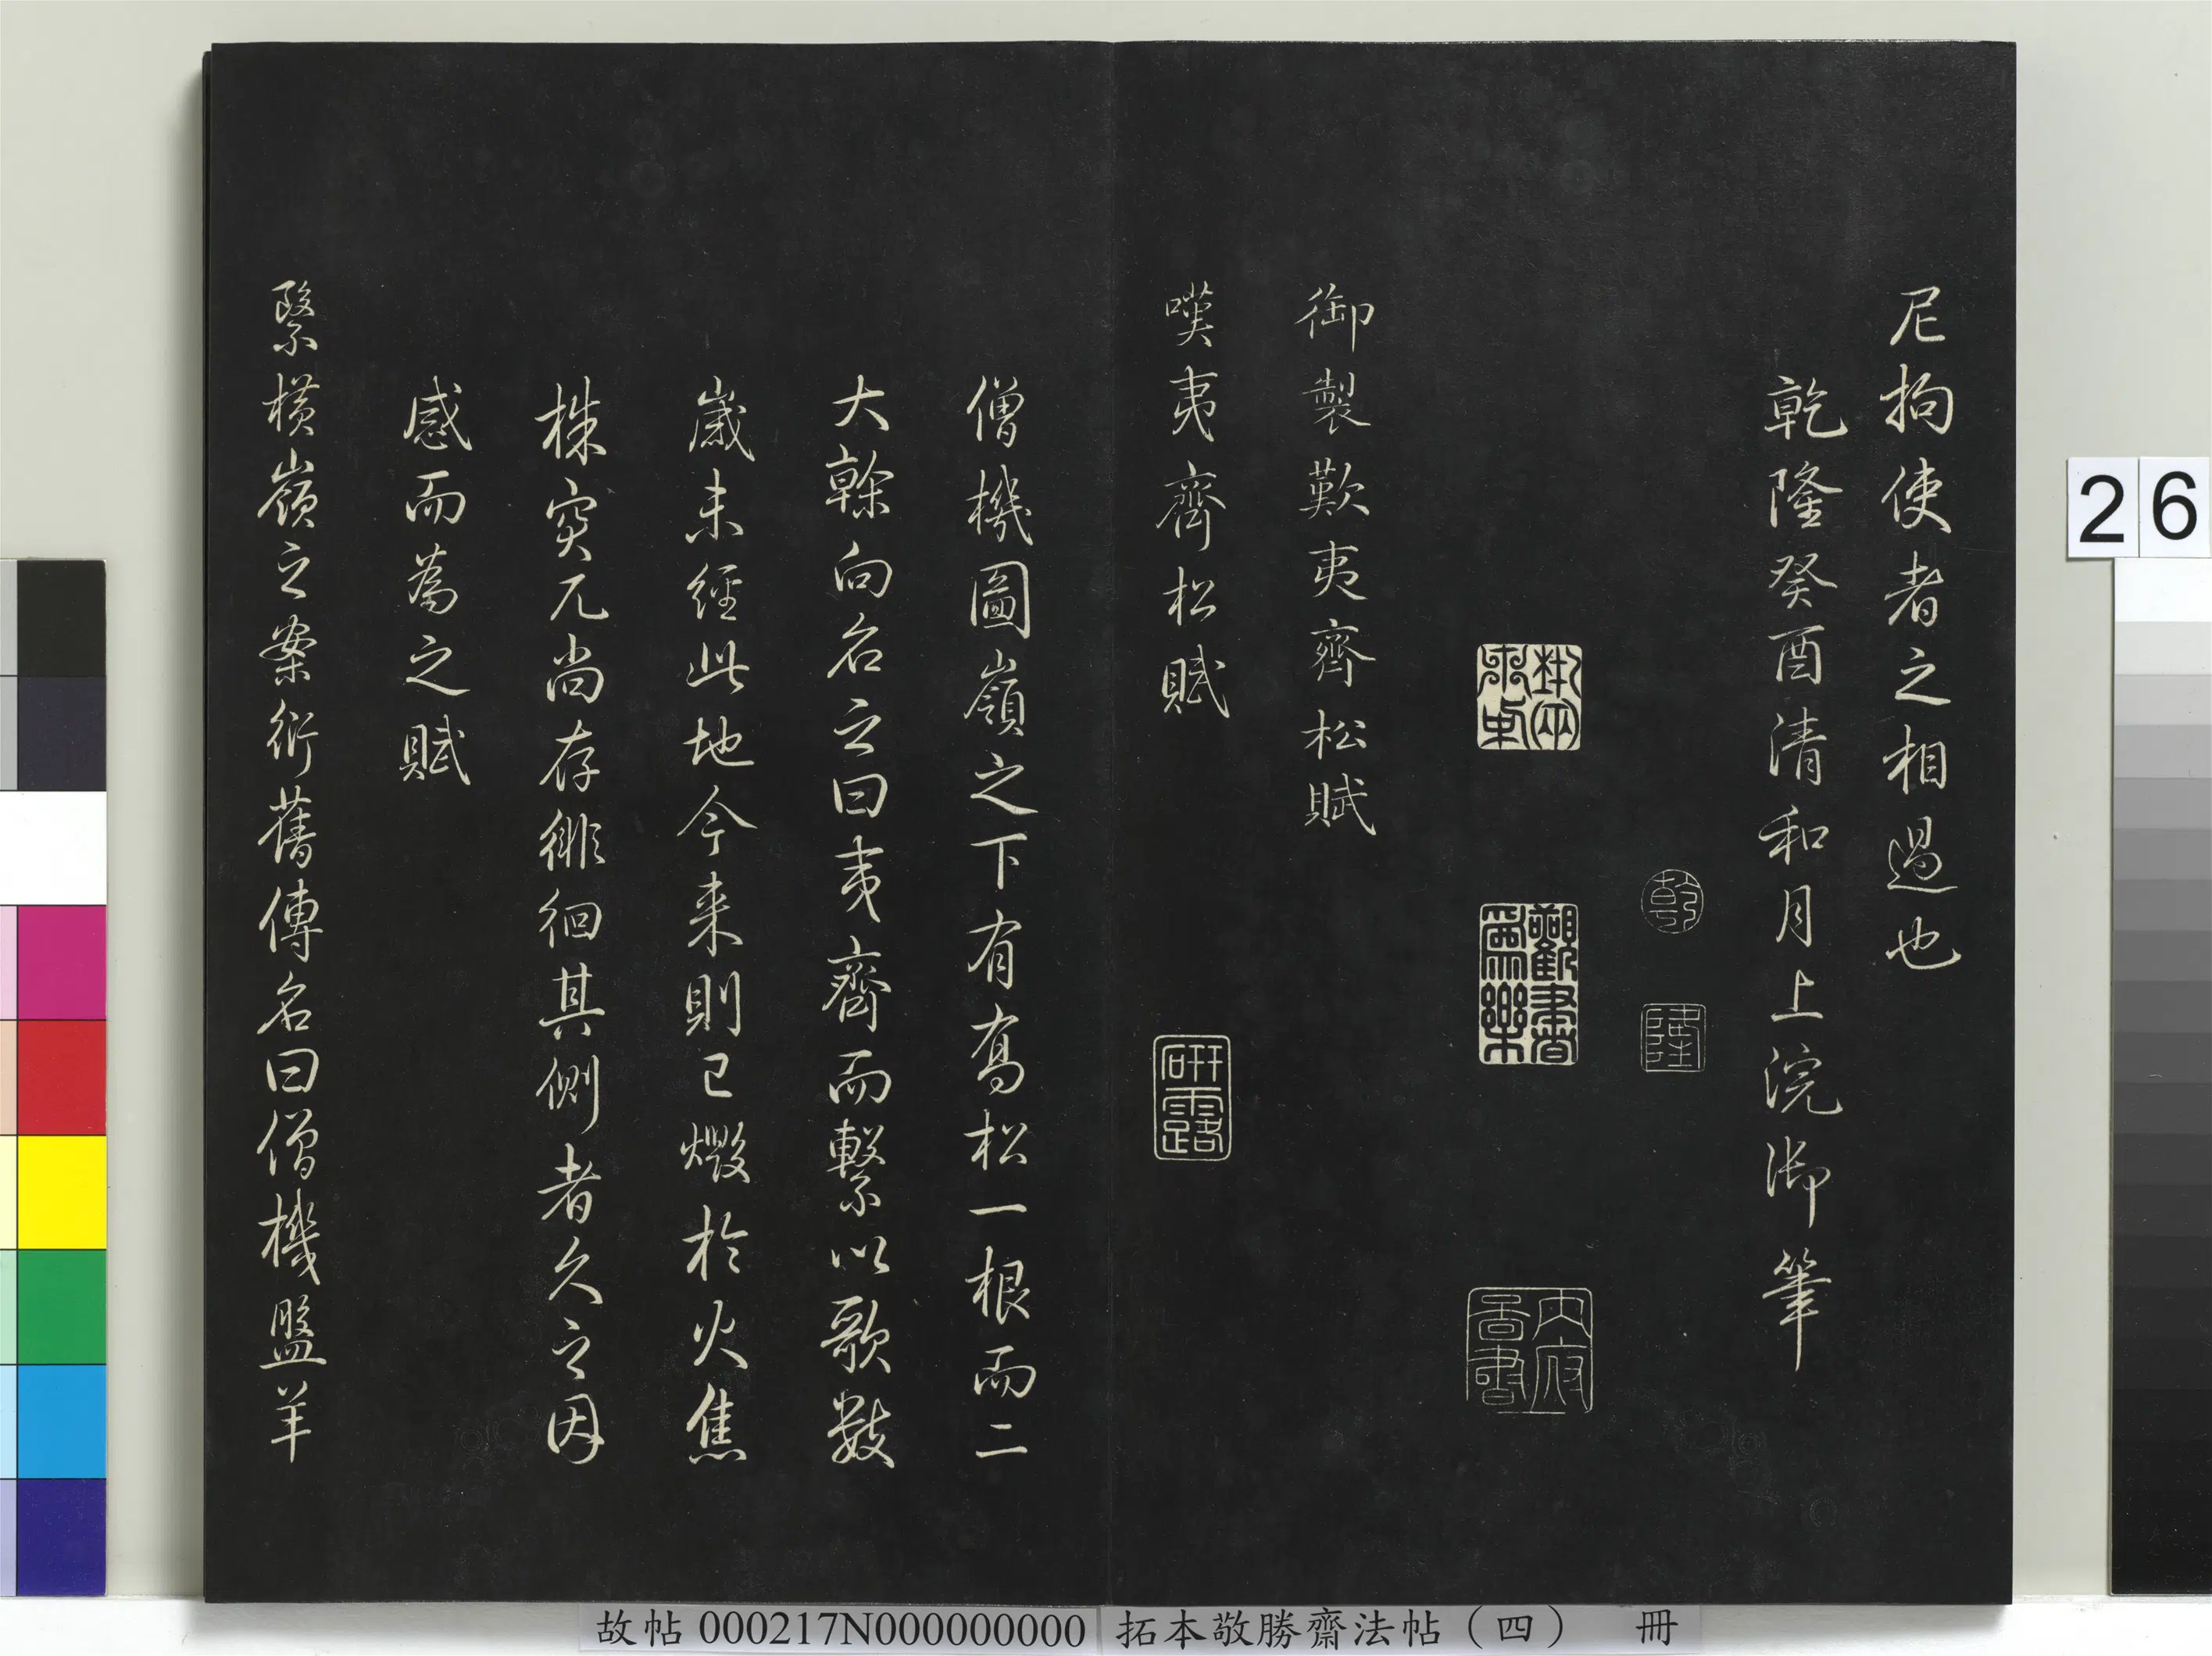 尼拘使者之相過也
乾隆癸酉清和月上浣御筆
乾
隆
觀書爲樂
内府
御製歎夷齊松賦
嘆夷齊松賦
研露
僧機圖嶺之下有髙松一根而二
大榦向名之曰夷齊而繫以歌數
歲未經此地今来則已燬於火焦
株突兀尚存徘徊其側者久之因
感而為之賦
繄橫嶺之案衍舊傳名曰僧機盤羊
26
故帖 000217N000000000 拓本敬勝齋法帖（四） 冊